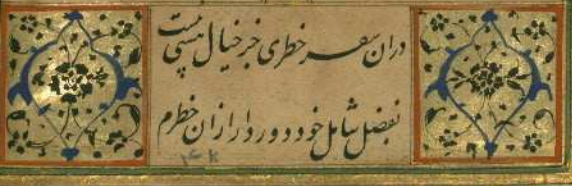 دران سفر خطری جز خیال هستی نیست
بفضل شامل خود دور دار ازان خطرم